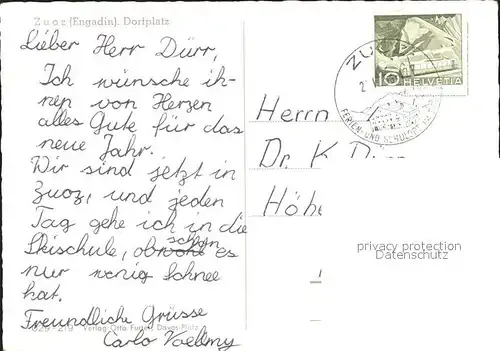 Zuoz (Engadin). Dorfplatz
Lieber Herr Dürr,
Ich wünsche ih-
nen von Herzen
alles Gute für das
neue Jahr.
Wir sind jetzt in
Zuoz, und jeden
Tag gehe ich in die
Skischule, obwohl schon es
nur wenig Schnee
hat.
Freundliche Grüsse
Carlo Voellmy
329 - 219 Verlag Otto Furter, Davos-Platz
10 HELVETIA
ZUOZ
FERIEN- UND SCHULORT
Herrn
Dr. K. D
Höhe
privacy protection
Datenschutz